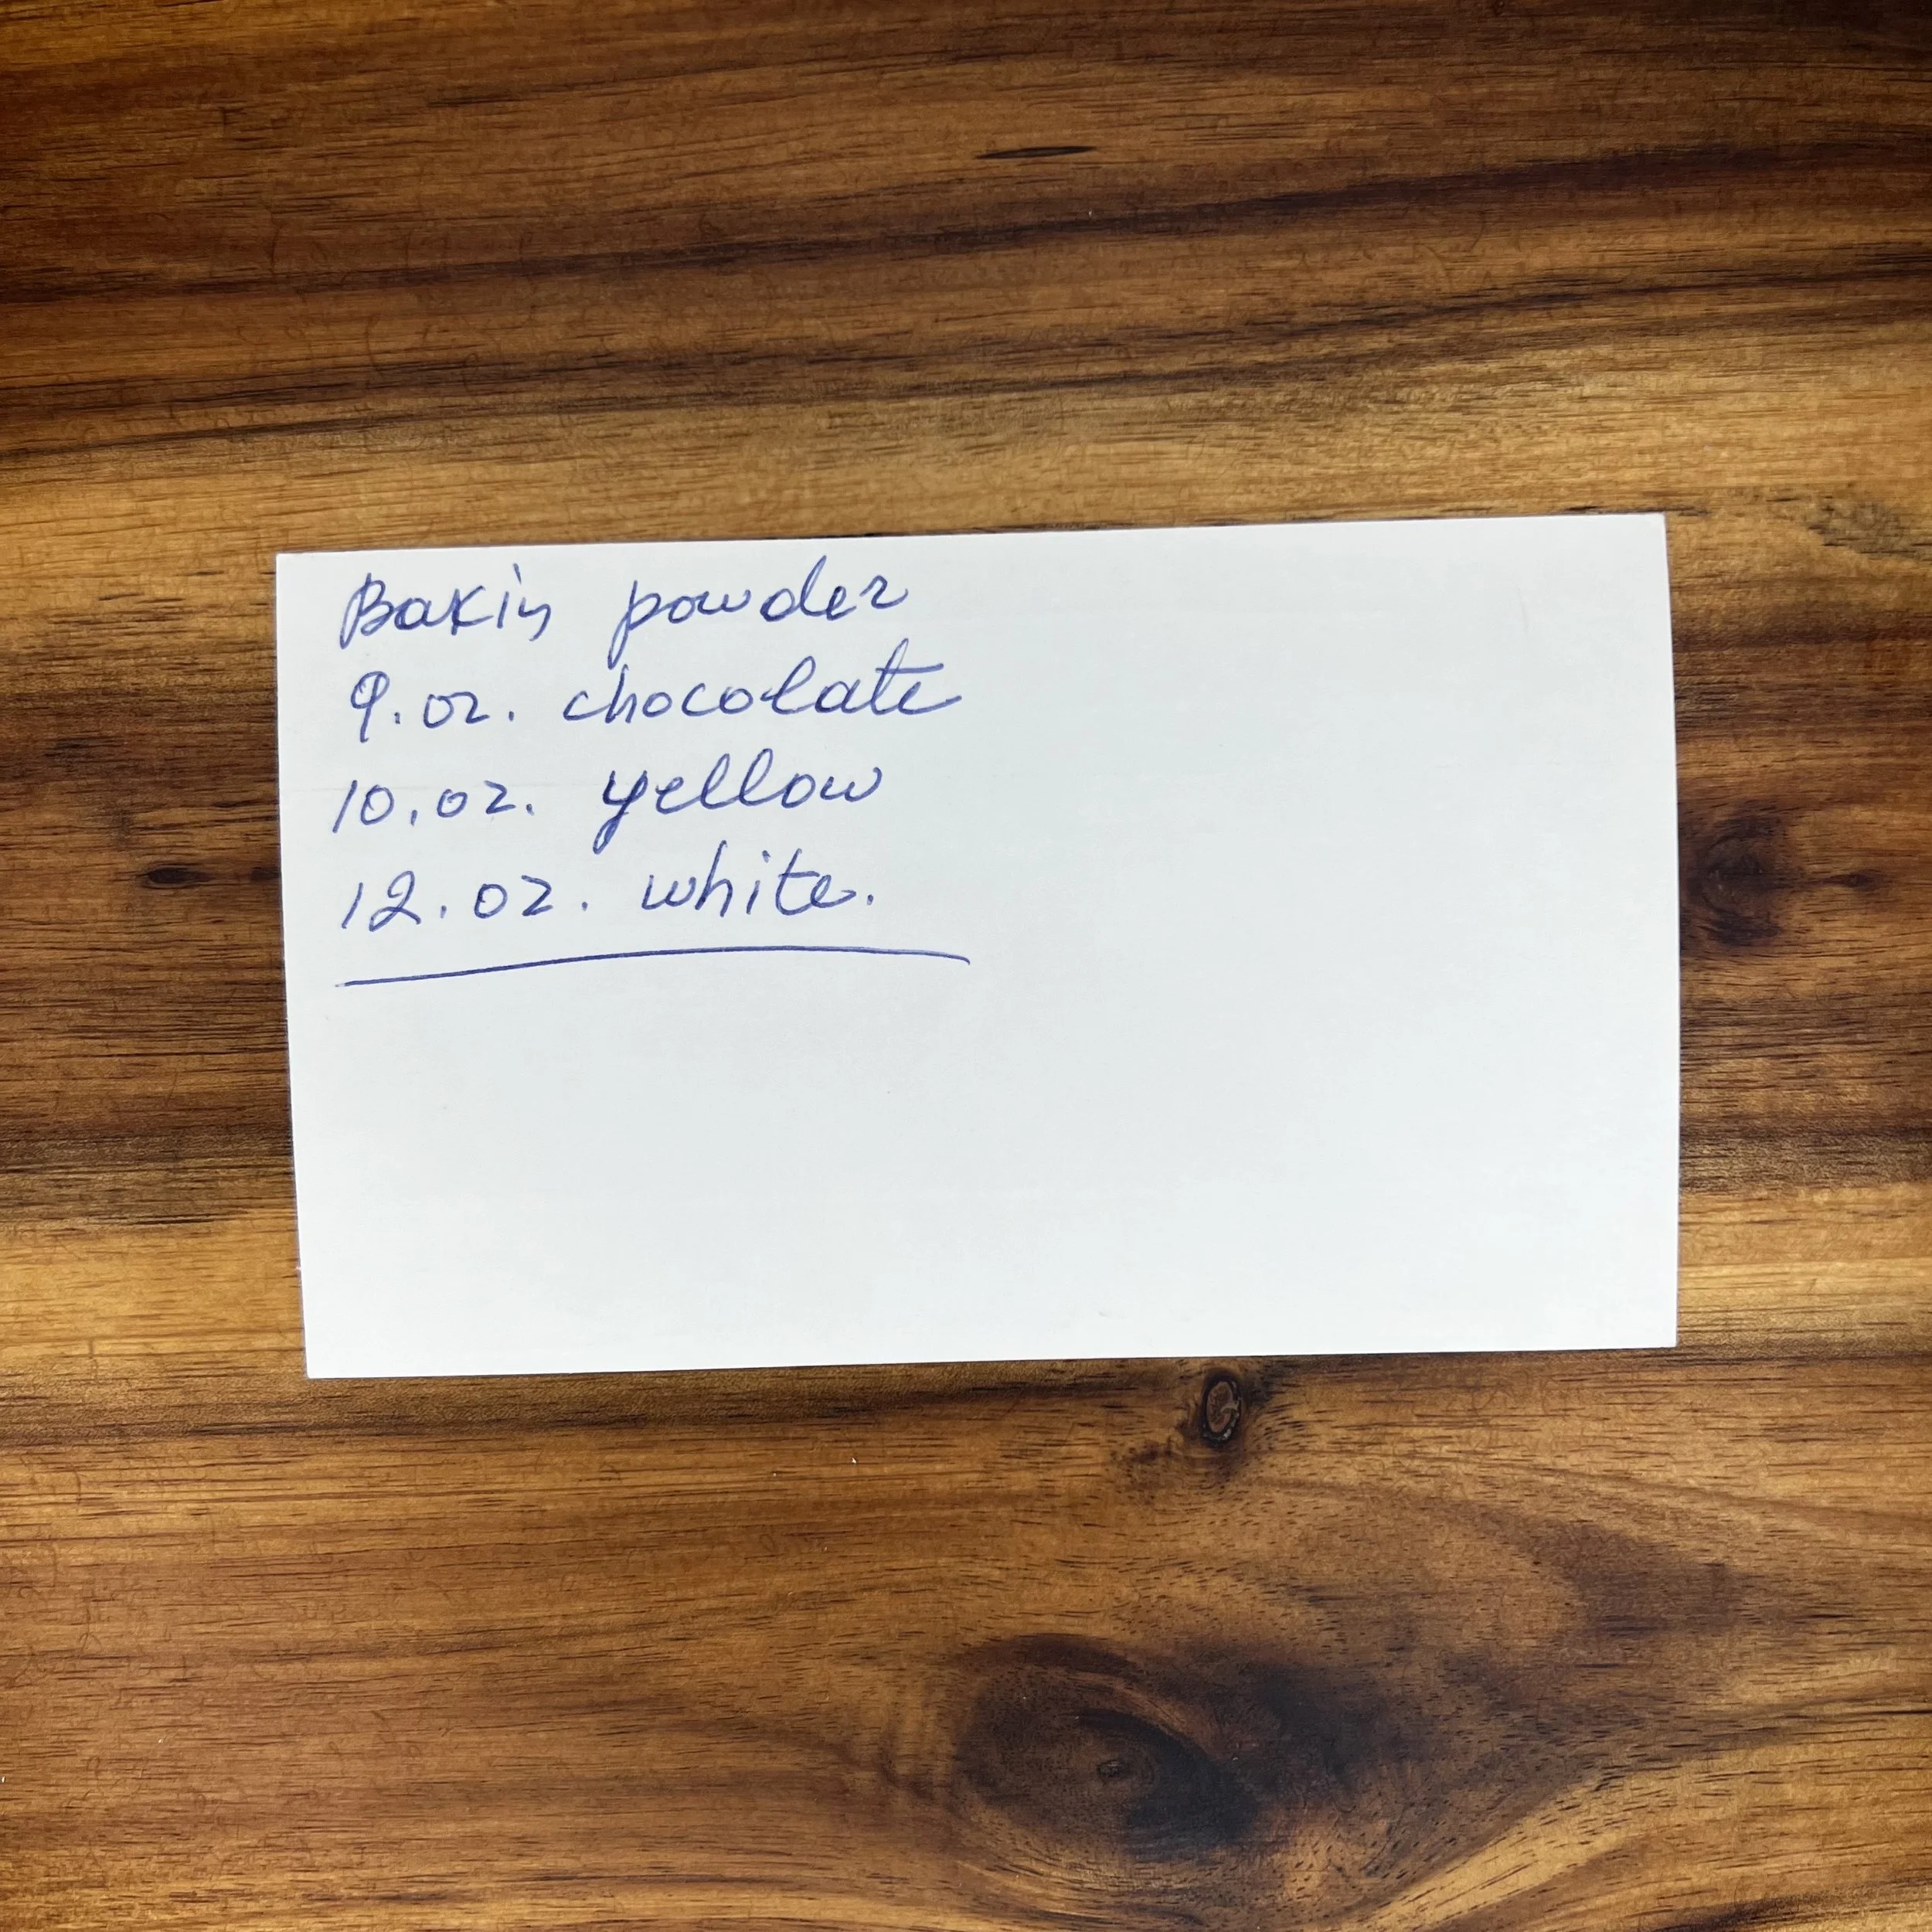 Bakin powder
9.oz. chocolate
10.oz. yellow
12.oz. white.